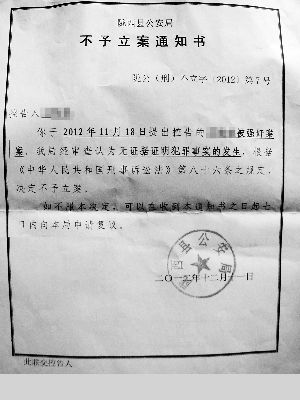 陇西县公安局
不予立案通知书
陇公(刑)不立字〔2012〕第7号
控告人
你于2012年11月18日提出控告的 被强奸案
案,我局经审查认为无证据证明犯罪事实的发生,根据
《中华人民共和国刑事诉讼法》第八十六条之规定,
决定不予立案。
如不服本决定,可以在收到本通知书之日起七
日内向本局申请复议。
陇西县公安局
二〇一二年十二月十一日
此联交控告人